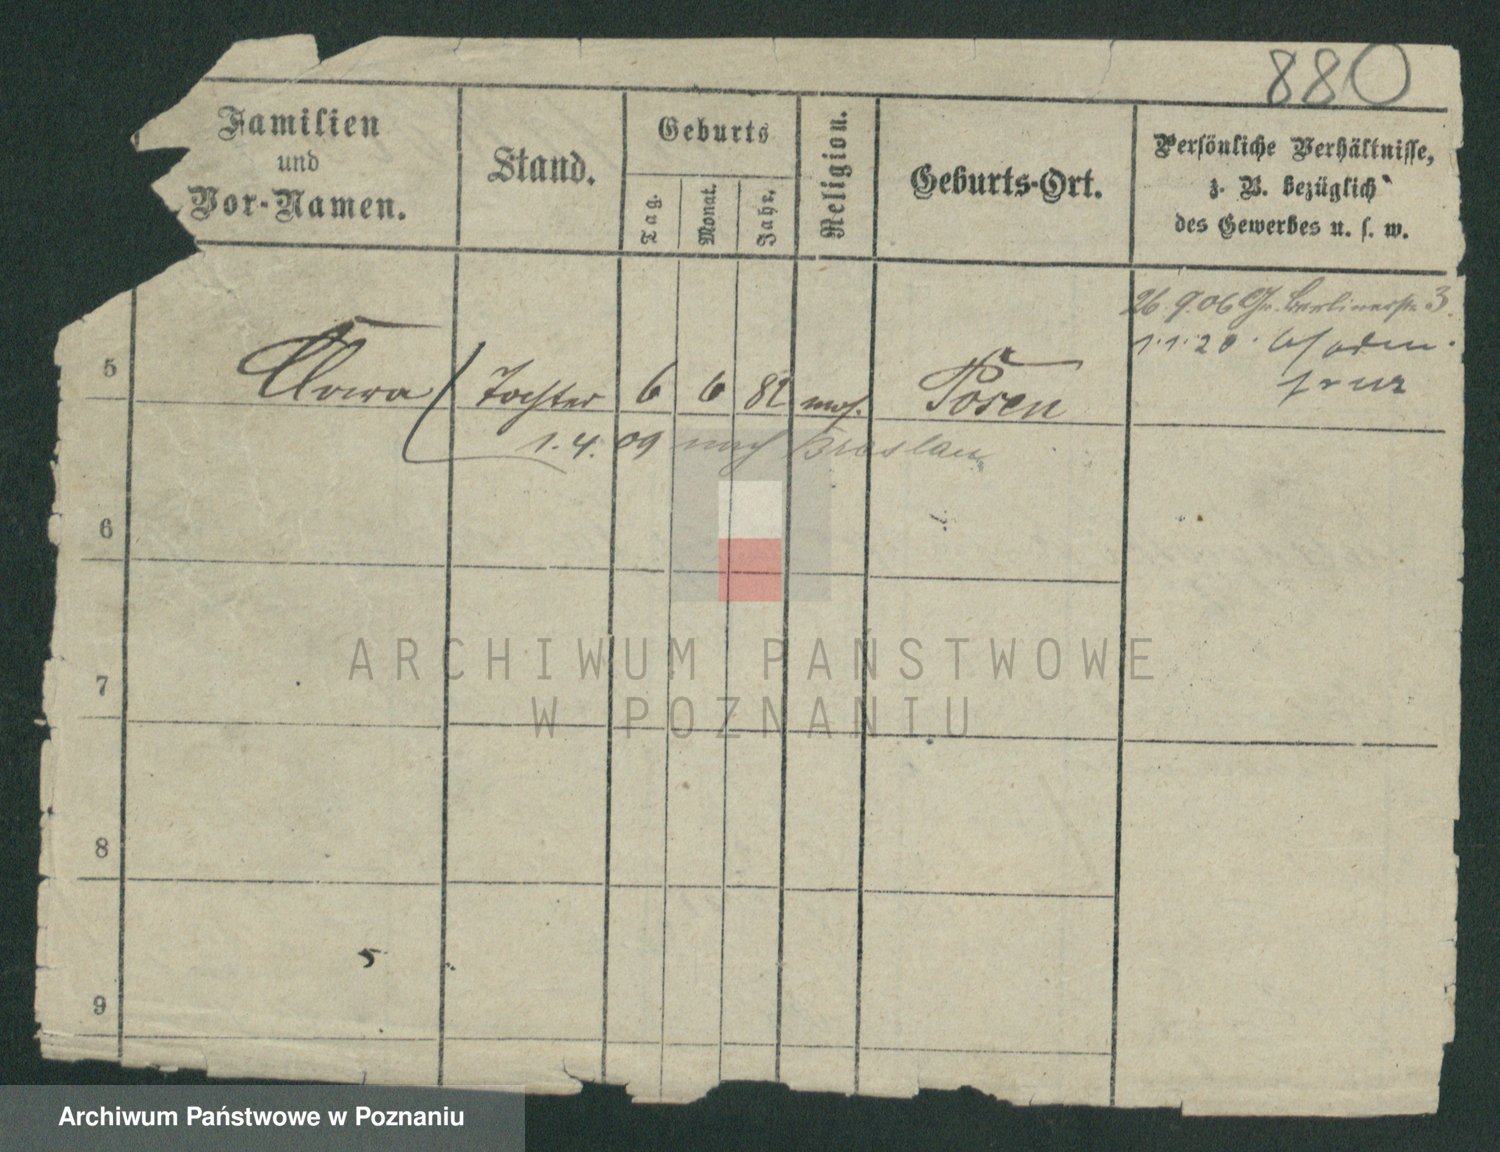 880
Familien
und
Vor-Namen.
Stand.
Geburts
Tag.
Monat.
Jahr.
Religion.
Geburts-Ort.
Persönliche Verhältnisse,
z. B. bezüglich
des Gewerbes u. s. w.
26. 9. 06 Gr. Berlinerstr. 3
1. 1. 20.
5 Clara Tochter 6 6 82 mos. Posen
1. 4. 09 nach Breslau
6
7
8
9
ARCHIWUM PAŃSTWOWE
W POZNANIU
Archiwum Państwowe w Poznaniu